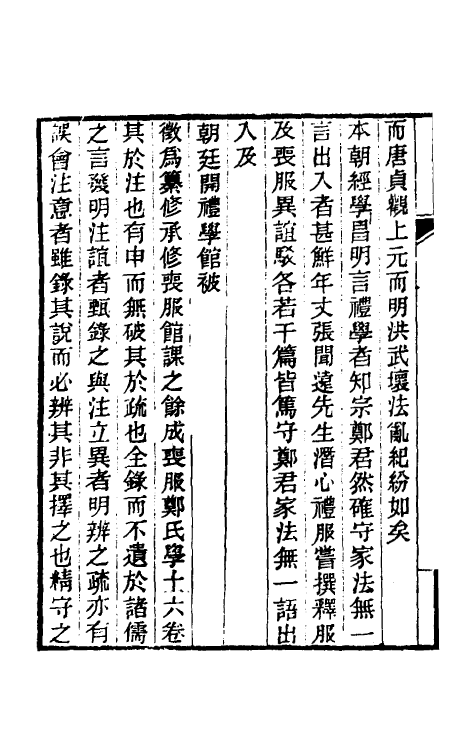 而唐貞觀上元而明洪武壞法亂紀紛如矣
本朝經學昌明言禮學者知宗鄭君然確守家法無一
言出入者甚鮮年丈張聞遠先生潛心禮服嘗撰釋服
及喪服異誼駁各若干篇皆篤守鄭君家法無一語出
入及
朝廷開禮學館被
徵為纂修承修喪服館課之餘成喪服鄭氏學十六卷
其於注也有申而無破其於疏也全錄而不遺於諸儒
之言發明注誼者甄錄之與注立異者明辨之疏亦有
誤會注意者雖錄其說而必辨其非其擇之也精守之